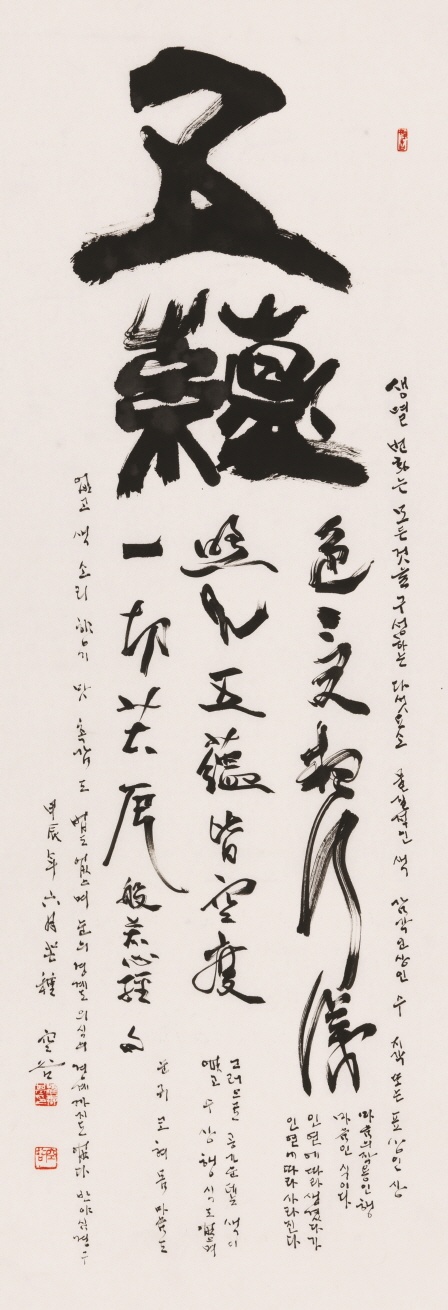 五
蘊
色受想行識
照見五蘊皆空度
一切苦厄 般若心經 句
생멸 변화는 모든것을 구성하는 다섯요소 물질적인 색 감각고상인 수 지각 또는 표상인 상
마음의작용인 행
마음인 식이다
인연에따라 생겼다가
인연에따라 사라진다
그러므로 공가운데 색이
없고 수 상 행 식도 없으며
눈 귀 코 혀 몸 마음도
없고 색 소리 향기 맛 촉감 도 법도 없으며 눈의 경계도 의식의 경계까지도 없다 반야심경 구
甲辰年 六月 芒種 空谷